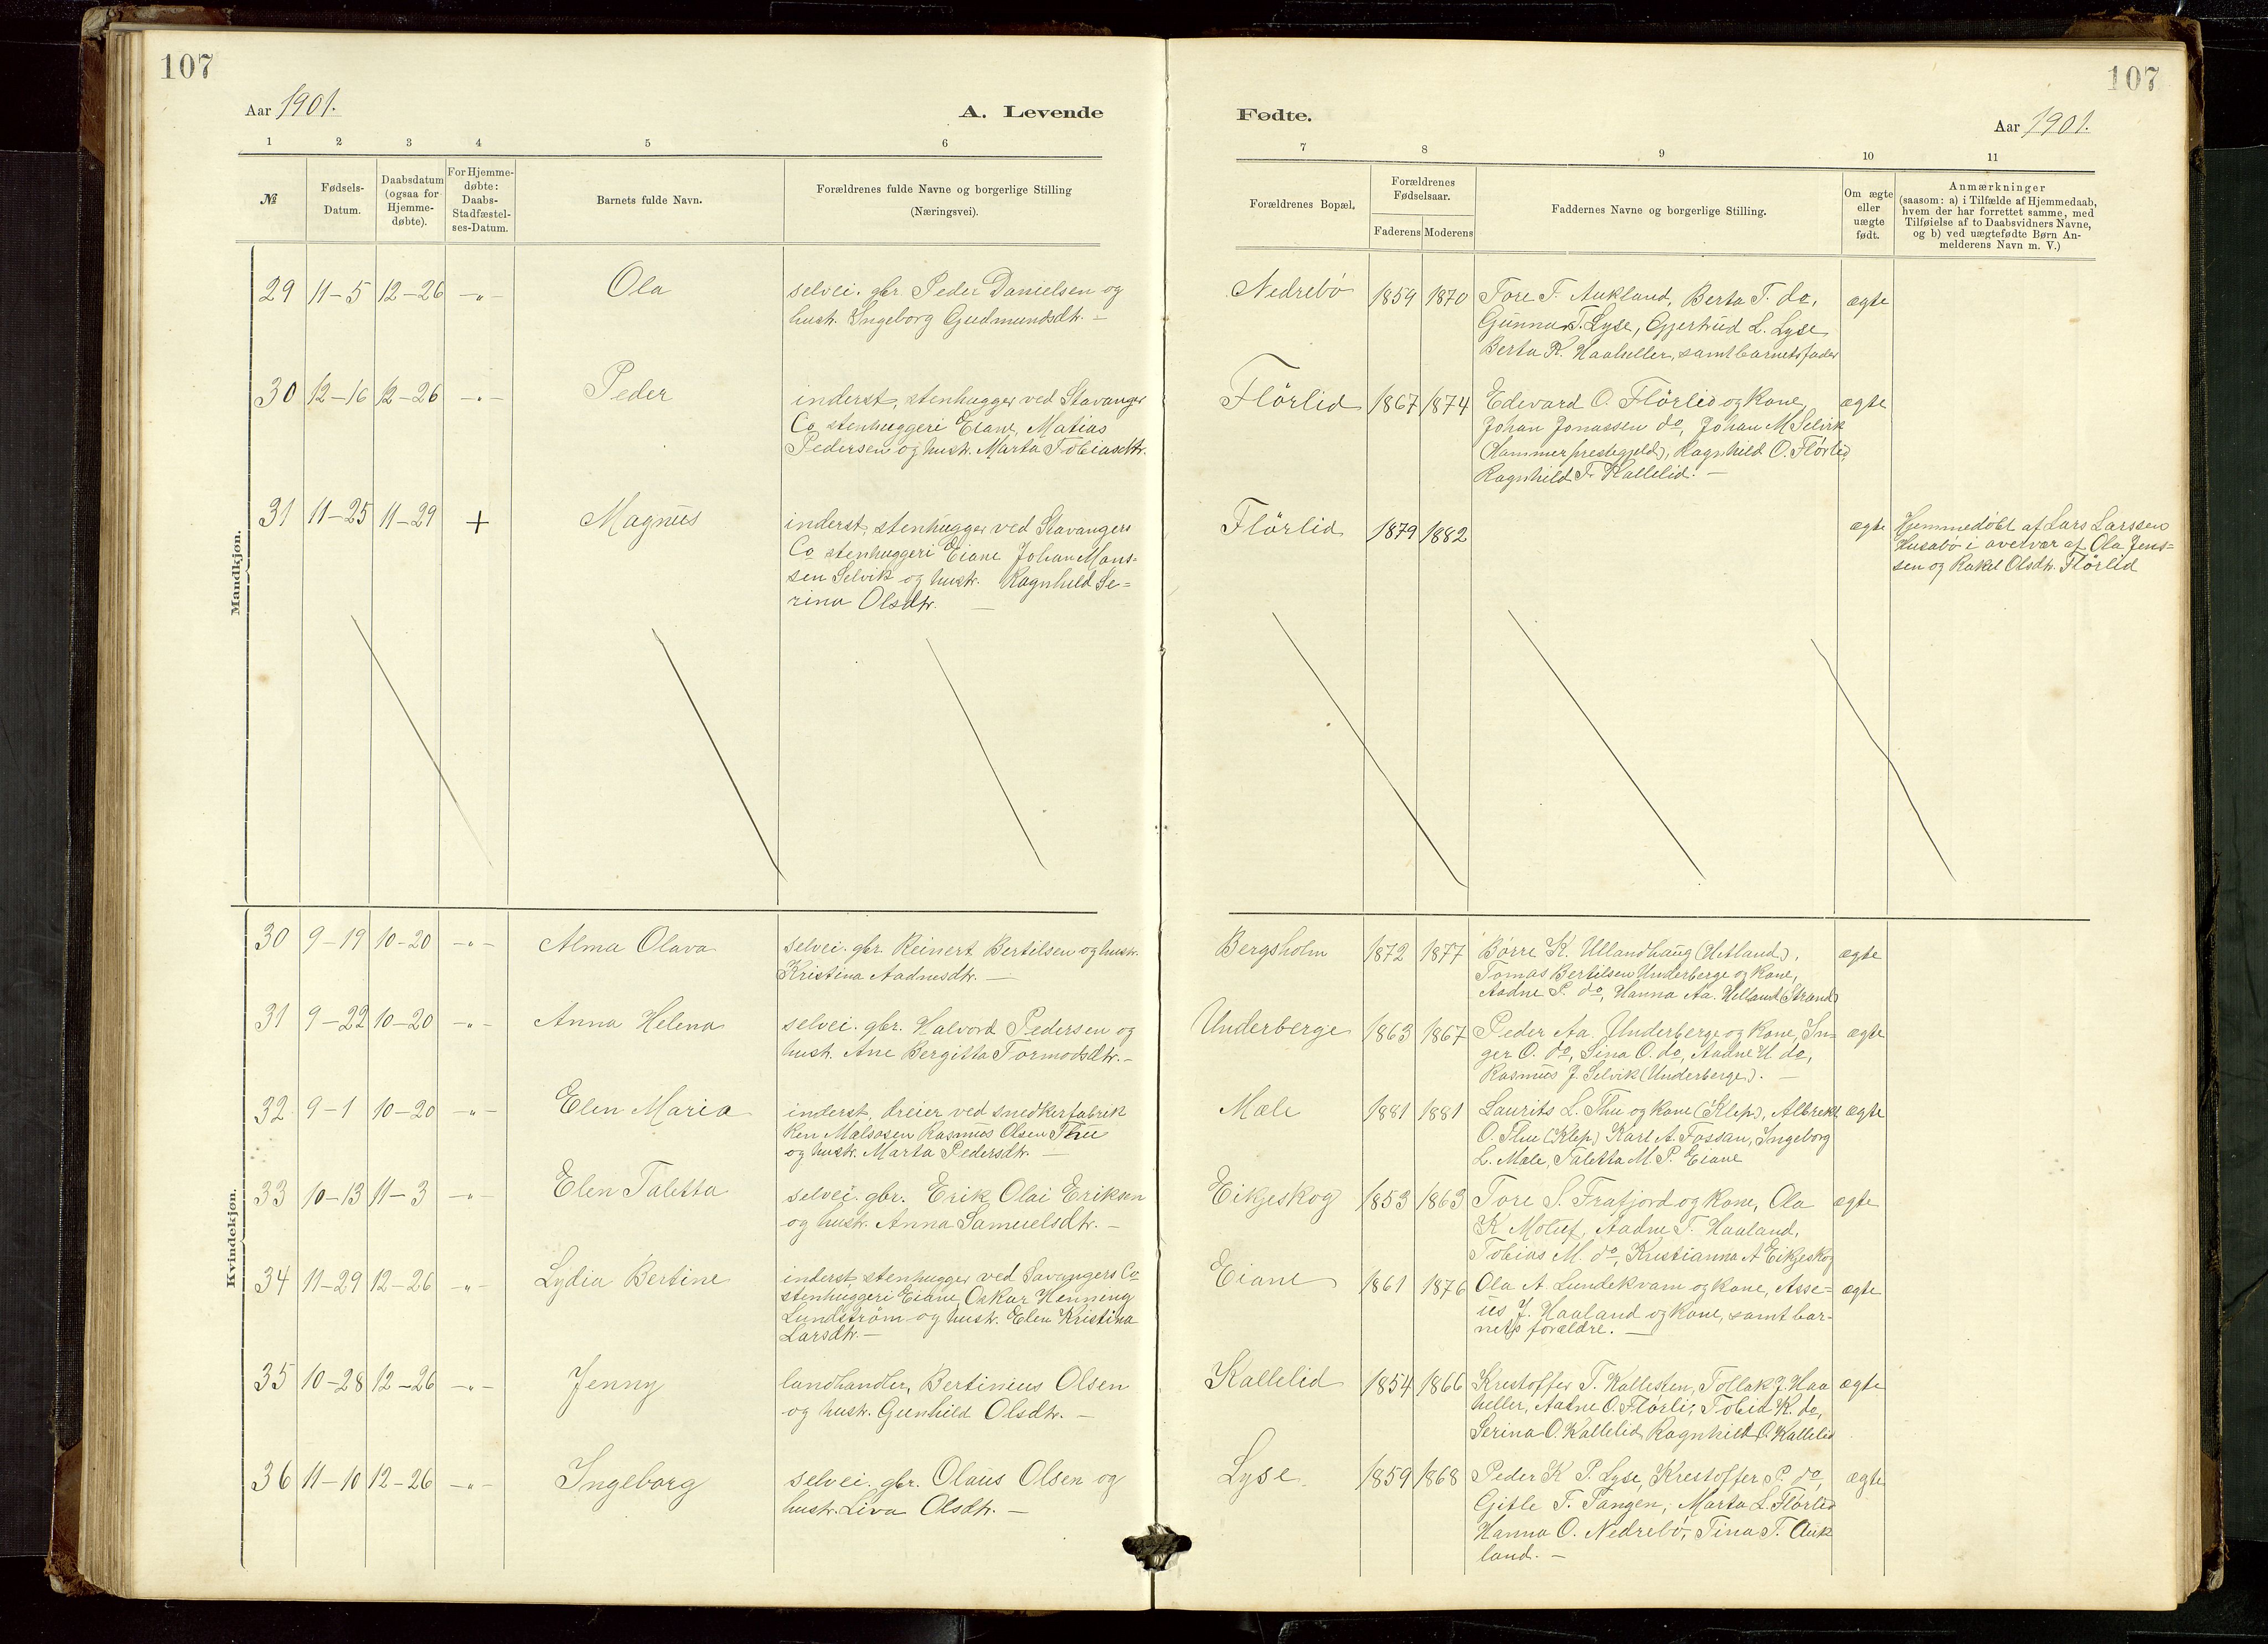 107
107
Aar 1901.
A. Levende
Fødte.
Aar 1901.
1 2 3 4 5 6 7 8 9 10 11
№
Fødsels-
Datum.
Daabsdatum
(ogsaa for
Hjemme-
døbte).
For Hjemme-
døbte:
Daabs-
Stadfæstel-
ses-Datum.
Barnets fulde Navn.
Forældrenes fulde Navne og borgerlige Stilling
(Næringsvei).
Forældrenes Bopæl.
Forældrenes
Fødselsaar.
Faderens Moderens
Faddernes Navne og borgerlige Stilling.
Om ægte
eller
uægte
født.
Anmærkninger
(saasom: a) i Tilfælde af Hjemmedaab,
hvem der har forrettet samme, med
Tilføielse af to Daabsvidners Navne,
og b) ved uægtefødte Børn An-
melderens Navn m. V.)
Mandkjøn.
29 11-5 12-26 -"- Ola
selvei. gbr. Peder Danielsen og
hustr. Ingeborg Gudmundsdtr. -
Nedrebö 1859 1870
Tore T. Aukland, Berta T. do,
Gunnar T. Lyse, Gjertrud L. Lyse,
Berta R. Haaheller, samt barnets fader
ægte
30 12-16 12-26 -"- Peder
inderst, stenhugger ved Stavanger
Co stenhuggeri Eiane, Matias
Pedersen og hustr. Marta Tobiasdtr.
Flörlid 1867 1874
Edvard O. Flörlid og kone,
Johan Jonassen do, Johan M Selvik
(Hammer prestegjeld), Ragnhild O. Flörlid,
Ragnhild T. Kallelid. -
ægte
31 11-25 11-29 + Magnus
inderst, stenhugger ved Stavangers
Co stenhuggeri Eiane Johan Mons-
sen Selvik og hustr. Ragnhild Se-
rina Olsdtr. -
Flörlid 1879 1882
ægte
Hjemmedöbt af Lars Larssen
Husabö i overvær af Ola Jens-
sen og Rakel Olsdtr. Flörlid
Kvindekjøn.
30 9-19 10-20 -"- Alma Olava
selvei. gbr. Reinert Bertilsen og hustr.
Kristina Aadnesdtr. -
Bergsholm 1872 1877
Börre K. Ullandhaug (Hetland),
Tomas Bertilsen Underberge og kone,
Aadne P. do, Hanna Aa. Helland (Strand)
ægte
31 9-22 10-20 -"- Anna Helena
selvei. gbr. Halvord Pedersen og
hustr. Ane Bergitta Tormodsdtr. -
Underberge 1863 1867
Peder Aa. Underberge og kone, In-
ger O. do, Sina O. do, Aadne H. do,
Rasmus J. Selvik (Underberge). -
ægte
32 9-1 10-20 -"- Elen Maria
inderst, dreier ved snedkerfabrik
ken Malsosen Rasmus Olsen Thu
og hustr. Marta Pedersdtr. -
Mæle 1881 1881
Laurits L. Thu og kone (Klep), Albrekt
O. Thu (Klep) Karl A. Fossan, Ingeborg
L. Mæle, Taletta M. P. Eiane
ægte
33 10-13 11-3 -"- Elen Taletta
selvei. gbr. Erik Olai Eriksen
og hustr. Anna Samuelsdtr. -
Eikjeskog 1853 1863
Tore S. Frafjord og kone, Ola
K Molaug, Aadne T. Haaland,
Tobias M. do, Kristianna A Eikjeskog
ægte
34 11-29 12-26 -"- Lydia Bertine
inderst, stenhugger ved Savangers Co
stenhuggeri Eiane Oskar Henneng
Lundström og hustr. Elen Kristina
Larsdtr. -
Eiane 1861 1876
Ola A. Lundekvam og kone, Asse-
us J. Haaland og kone, samt bar-
nets forældre. -
ægte
35 10-28 12-26 -"- Jenny
landhandler, Bertinius Olsen
og hustr. Gunhild Olsdtr. -
Kallelid 1854 1866
Krestoffer T. Kallesten, Tollak J. Haa
heller, Aadne O. Flörli, Tobia K. do,
Serina O. Kallelid Ragnhild O. Kallelid
ægte
36 11-10 12-26 -"- Ingeborg
selvei. gbr. Olaus Olsen og
hustr. Liva Olsdtr. -
Lyse 1859 1868
Peder K P. Lyse, Krestoffer P. do,
Gitle T. Tangen, Marta L. Flörlid
Hanna O. Nedrebö, Tina T. Auk
land. -
ægte